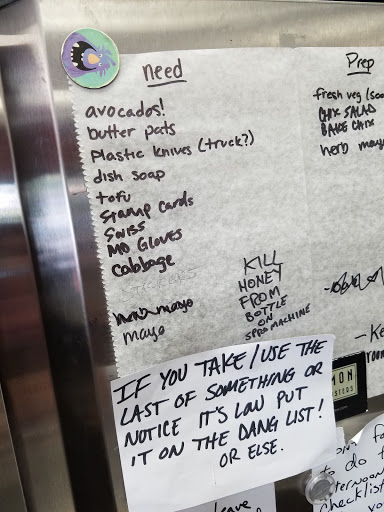 need
avocados!
butter pats
Plastic knives (truck?)
dish soap
tofu
Stamp cards
Swiss
MD Gloves
Cabbage
herb mayo
mayo
KILL
HONEY
FROM
BOTTLE
ON
SPRO MACHINE
Prep
fresh veg
CHIX SALAD
BAKE CHIX
herb mayo
IF YOU TAKE/USE THE
LAST OF SOMETHING OR
NOTICE IT'S LOW PUT
IT ON THE DANG LIST!
OR ELSE.
to do
checklist